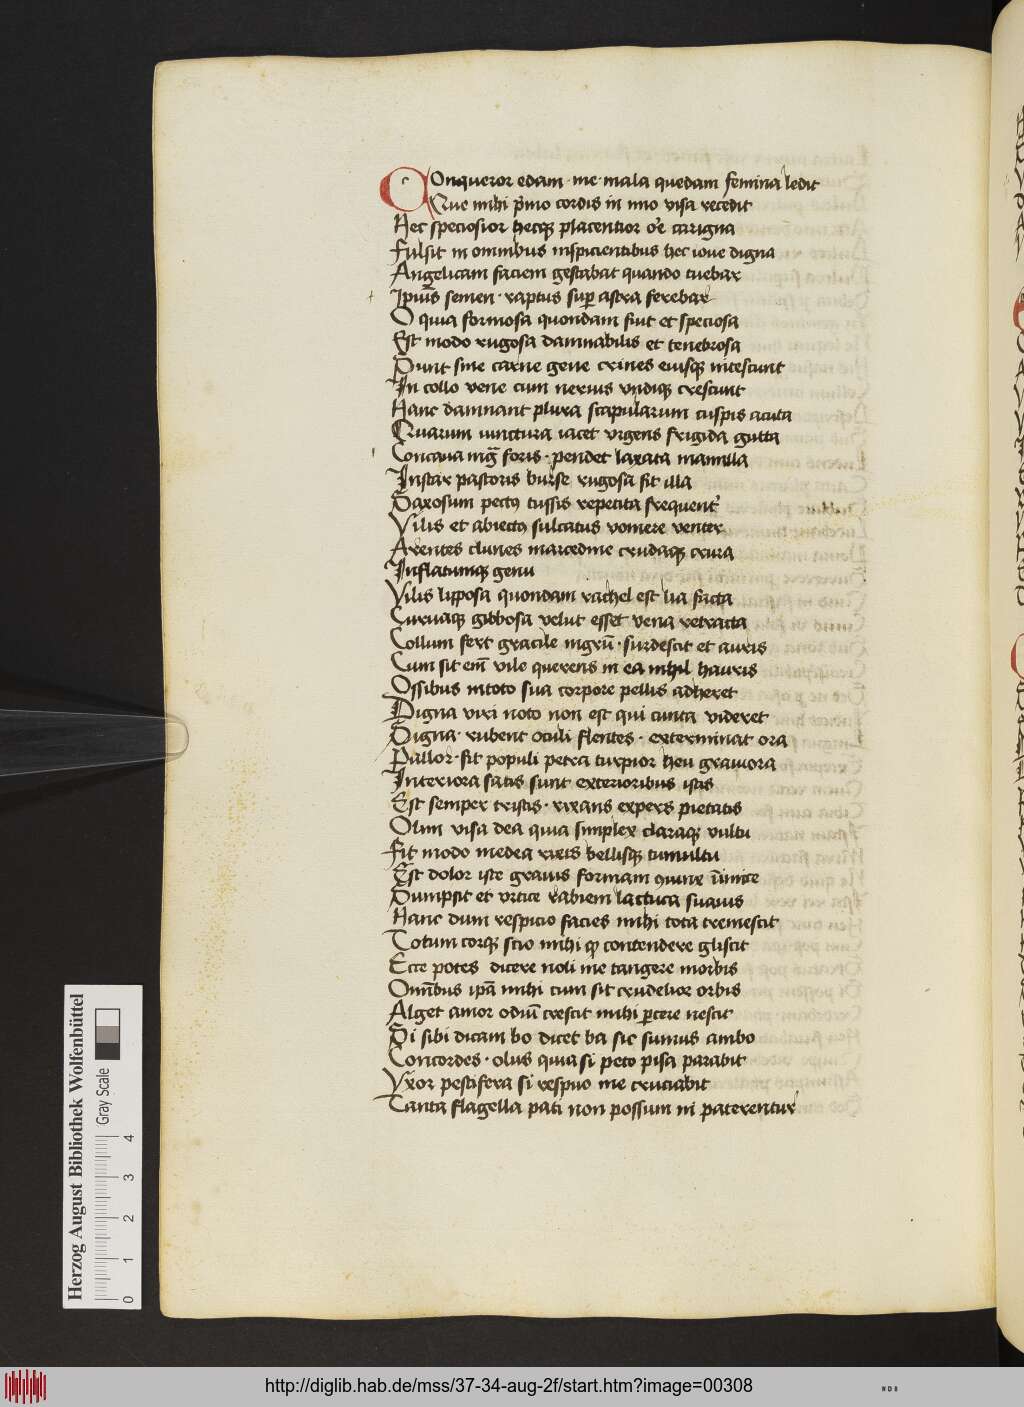 Conqueror edam · me · mala quedam femina ledit
Que mihi p̄mo cordis in imo visa recedit
Nec speciosior hecqꝫ placentior or̄e carigna
Fulsit in omnibus inspicientibus hec ioue digna
Angelicam faciem gestabat quando tuebar
Ipius̄ semen · raptus sup̄ astra ferebar
O quia formosa quondam fiut et speciosa
Est modo rugosa damnabilis et tenebrosa
Sunt sine carne gene crines eiusqꝫ nitescunt
In collo vene cum neruis vndiqꝫ crescunt
Hanc damnant plura scapularum cuspis acuta
Cruarum iunctura iacet vrgens frigida gutta
Concaua mḡ foris · pendet laxata mamilla
Instar pastoris burse rugosa sit illa
Saxosum pectꝰ tussis repetita frequent᷑
Vilis et abiectꝰ sulcatus vomere venter
Arentes clunes marcedine crudaqꝫ crura
Inflatumqꝫ genu
Vilis lipposa quondam rachel est lia facta
Curuaqꝫ gibbosa velut esset vena retracta
Collum fert gracile nigrū · surdescit et auris
Cum sit em̄ vile querens in ea nihil hauris
Ossibus intoto sua corpore pellis adheret
Digna viri noto non est qui cunta videret
Digna · rubent oculi flentes · exterminat ora
Pallor · fit populi petra turpior heu grauiora
Interiora satis sunt exterioribus istis
Est semper tristis · rixans expers pietatis
Olim visa dea quia simplex claraqꝫ vultu
Fit modo medea rixis bellisqꝫ tumultu
Est dolor iste grauis formam
Sumpsit et vrtice rabiem lactuca suauis
Hanc dum respicio facies mihi tota tremescit
Totum corqꝫ scio mihi qꝫ contendere gliscit
Ecce potes dicere noli me tangere morbis
Omībus ip̄a mihi cum sit crudelior orbis
Alget amor odiū crescit mihi p̄cere nescit
Si sibi dicam bo dicet ba sic sumus ambo
Concordes · olus quia si peto pisa parabit
Vxor pestifera si respuo me cruciabit
Tanta flagella pati non possum ni paterentur
Herzog August Bibliothek Wolfenbüttel
Gray Scale
0 1 2 3 4
http://diglib.hab.de/mss/37-34-aug-2f/start.htm?image=00308